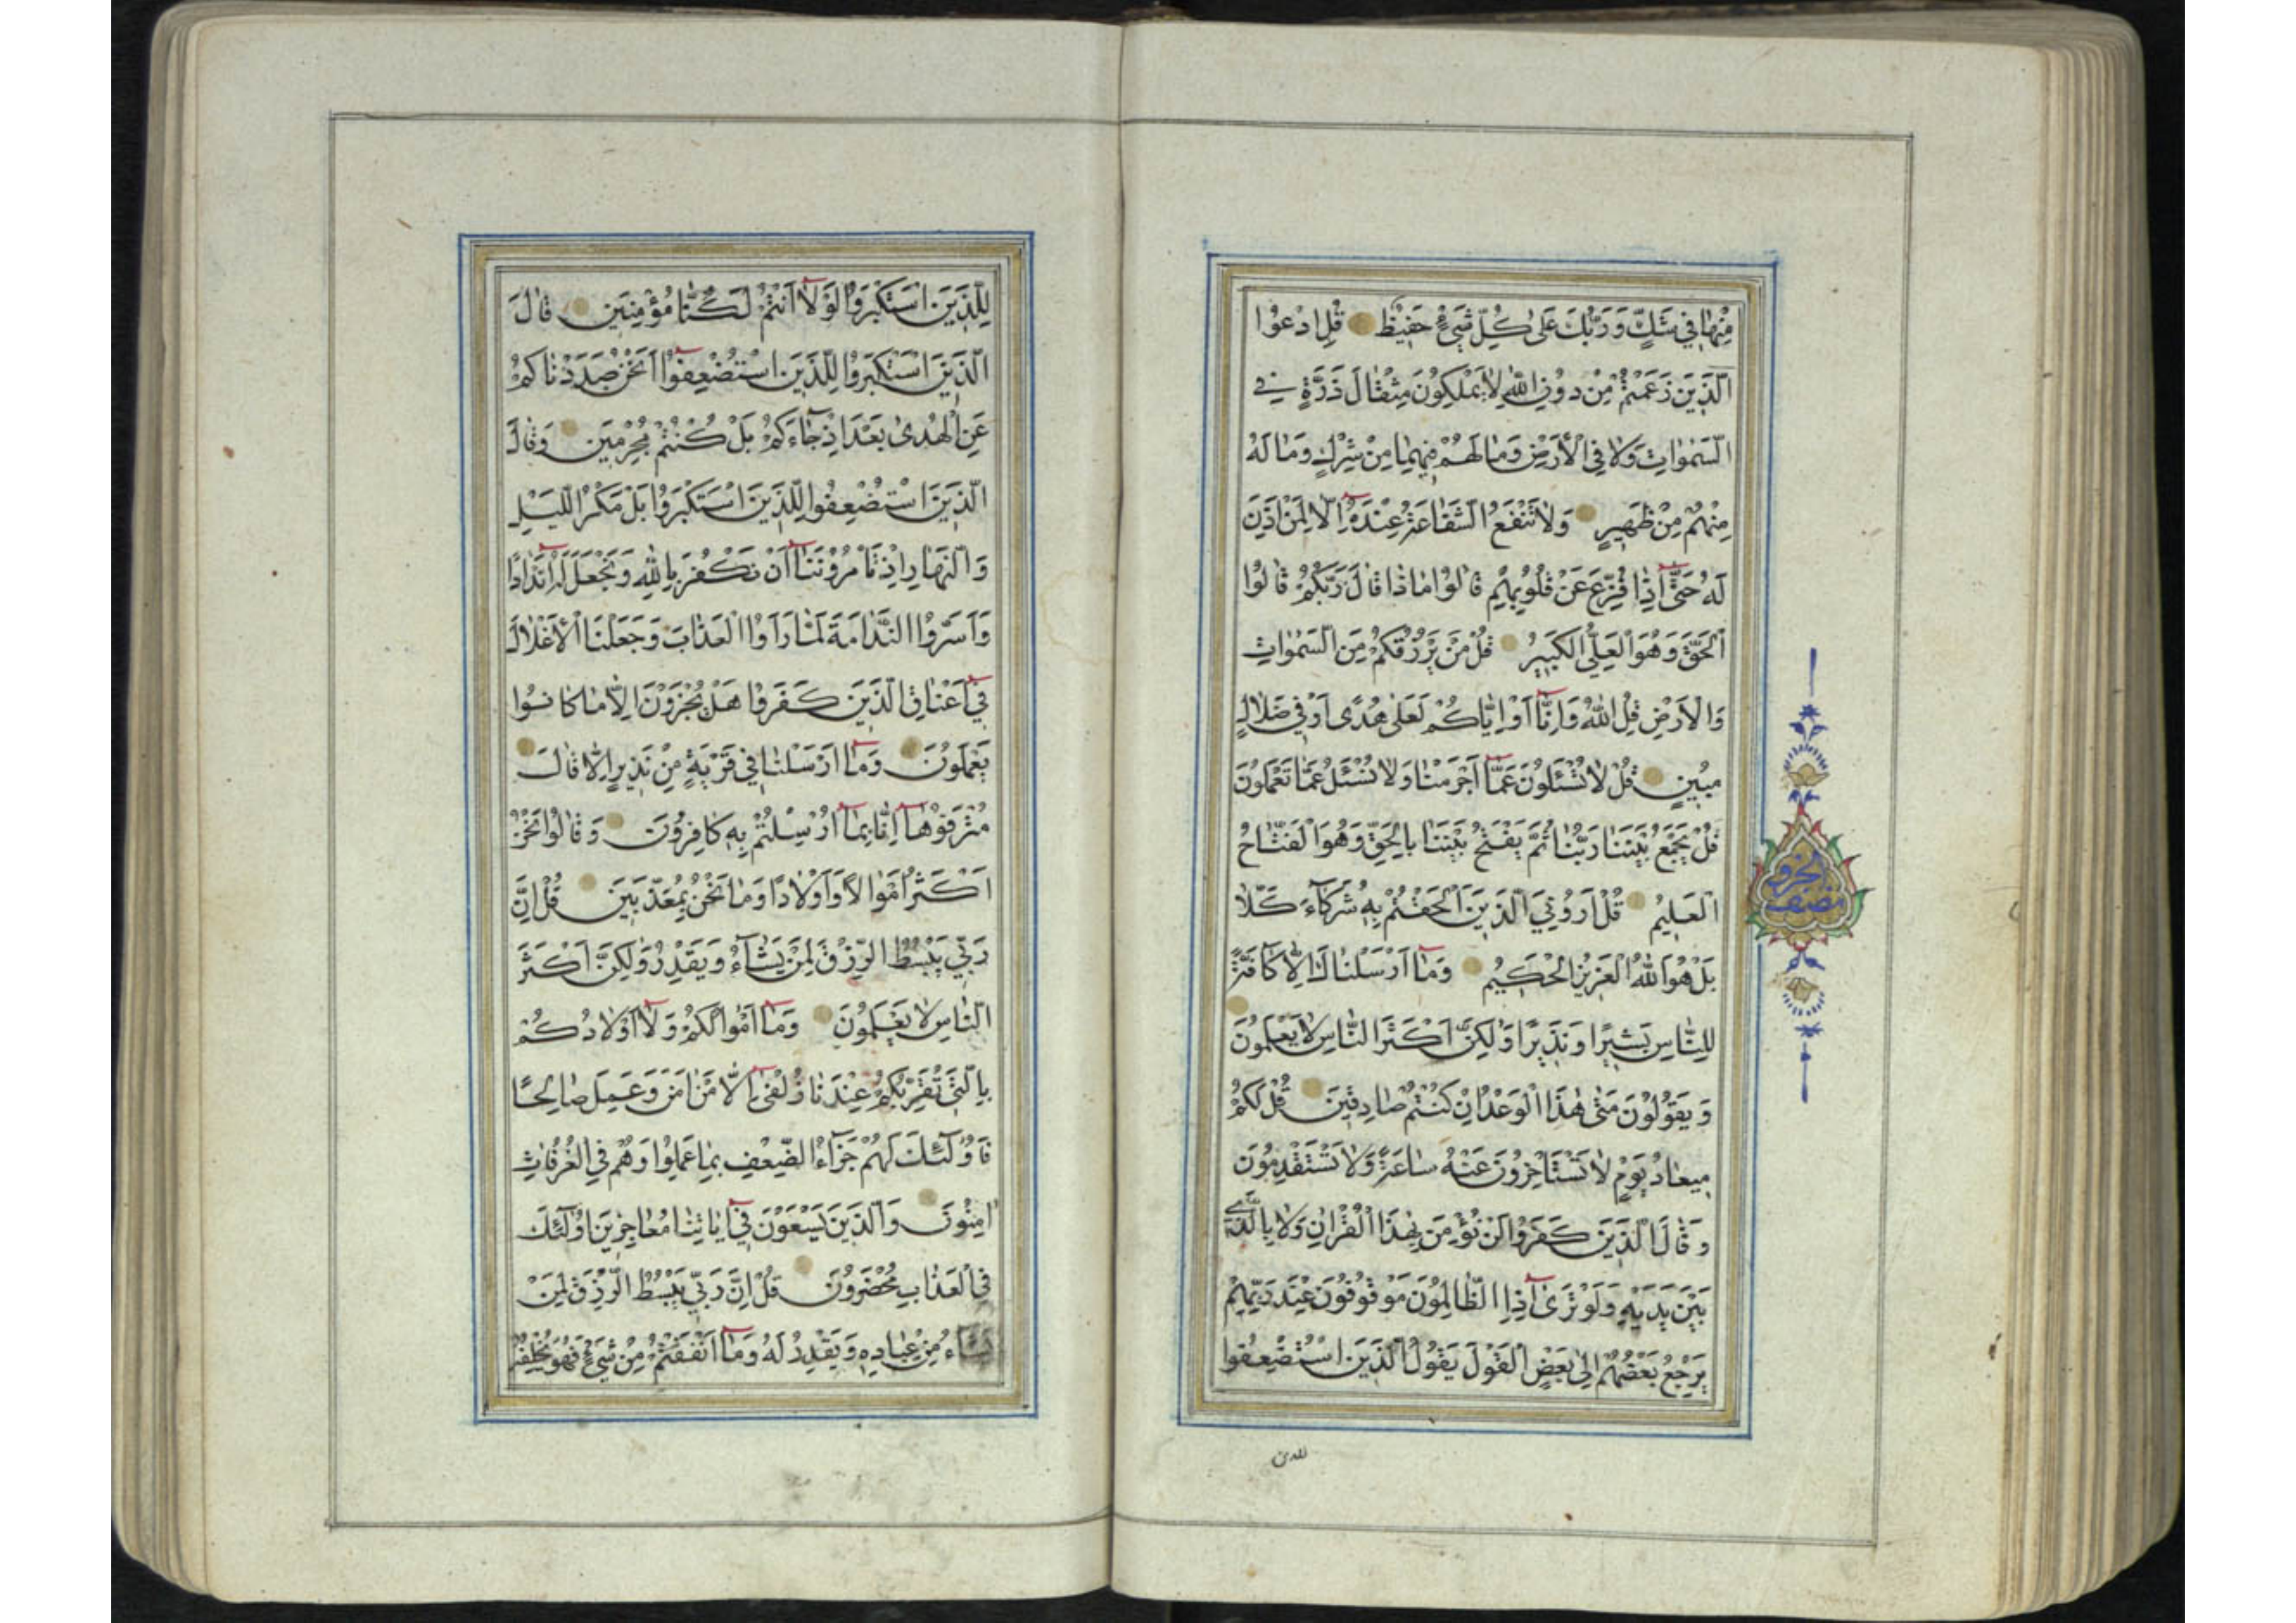 مِنْهَا فِي شَكٍّ وَرَبُّكَ عَلَىٰ كُلِّ شَيْءٍ حَفِيظٌ قُلِ ادْعُوا
الَّذِينَ زَعَمْتُمْ مِنْ دُونِ اللَّهِ لَا يَمْلِكُونَ مِثْقَالَ ذَرَّةٍ فِي
السَّمٰوَاتِ وَلَا فِي الْأَرْضِ وَمَا لَهُمْ فِيهِمَا مِنْ شِرْكٍ وَمَا لَهُ
مِنْهُمْ مِنْ ظَهِيرٍ وَلَا تَنْفَعُ الشَّفَاعَةُ عِنْدَهُ إِلَّا لِمَنْ أَذِنَ
لَهُ حَتَّىٰ إِذَا فُزِّعَ عَنْ قُلُوبِهِمْ قَالُوا مَاذَا قَالَ رَبُّكُمْ قَالُوا
الْحَقَّ وَهُوَ الْعَلِيُّ الْكَبِيرُ قُلْ مَنْ يَرْزُقُكُمْ مِنَ السَّمٰوَاتِ
وَالْأَرْضِ قُلِ اللَّهُ وَإِنَّا أَوْ إِيَّاكُمْ لَعَلَىٰ هُدًى أَوْ فِي ضَلَالٍ
مُبِينٍ قُلْ لَا تُسْئَلُونَ عَمَّا أَجْرَمْنَا وَلَا نُسْئَلُ عَمَّا تَعْمَلُونَ
قُلْ يَجْمَعُ بَيْنَنَا رَبُّنَا ثُمَّ يَفْتَحُ بَيْنَنَا بِالْحَقِّ وَهُوَ الْفَتَّاحُ
الْعَلِيمُ قُلْ أَرُونِيَ الَّذِينَ أَلْحَقْتُمْ بِهِ شُرَكَاءَ كَلَّا
بَلْ هُوَ اللَّهُ الْعَزِيزُ الْحَكِيمُ وَمَا أَرْسَلْنَاكَ إِلَّا كَافَّةً
لِلنَّاسِ بَشِيرًا وَنَذِيرًا وَلَٰكِنَّ أَكْثَرَ النَّاسِ لَا يَعْلَمُونَ
وَيَقُولُونَ مَتَىٰ هٰذَا الْوَعْدُ إِنْ كُنْتُمْ صَادِقِينَ قُلْ لَكُمْ
مِيعَادُ يَوْمٍ لَا تَسْتَأْخِرُونَ عَنْهُ سَاعَةً وَلَا تَسْتَقْدِمُونَ
وَقَالَ الَّذِينَ كَفَرُوا لَنْ نُؤْمِنَ بِهٰذَا الْقُرْآنِ وَلَا بِالَّذِي
بَيْنَ يَدَيْهِ وَلَوْ تَرَىٰ إِذِ الظَّالِمُونَ مَوْقُوفُونَ عِنْدَ رَبِّهِمْ
يَرْجِعُ بَعْضُهُمْ إِلَىٰ بَعْضٍ الْقَوْلَ يَقُولُ الَّذِينَ اسْتُضْعِفُوا
للذين
نصف الحزب
لِلَّذِينَ اسْتَكْبَرُوا لَوْلَا أَنْتُمْ لَكُنَّا مُؤْمِنِينَ قَالَ
الَّذِينَ اسْتَكْبَرُوا لِلَّذِينَ اسْتُضْعِفُوا أَنَحْنُ صَدَدْنَاكُمْ
عَنِ الْهُدَىٰ بَعْدَ إِذْ جَاءَكُمْ بَلْ كُنْتُمْ مُجْرِمِينَ وَقَالَ
الَّذِينَ اسْتُضْعِفُوا لِلَّذِينَ اسْتَكْبَرُوا بَلْ مَكْرُ اللَّيْلِ
وَالنَّهَارِ إِذْ تَأْمُرُونَنَا أَنْ نَكْفُرَ بِاللَّهِ وَنَجْعَلَ لَهُ أَنْدَادًا
وَأَسَرُّوا النَّدَامَةَ لَمَّا رَأَوُا الْعَذَابَ وَجَعَلْنَا الْأَغْلَالَ
فِي أَعْنَاقِ الَّذِينَ كَفَرُوا هَلْ يُجْزَوْنَ إِلَّا مَا كَانُوا
يَعْمَلُونَ وَمَا أَرْسَلْنَا فِي قَرْيَةٍ مِنْ نَذِيرٍ إِلَّا قَالَ
مُتْرَفُوهَا إِنَّا بِمَا أُرْسِلْتُمْ بِهِ كَافِرُونَ وَقَالُوا نَحْنُ
أَكْثَرُ أَمْوَالًا وَأَوْلَادًا وَمَا نَحْنُ بِمُعَذَّبِينَ قُلْ إِنَّ
رَبِّي يَبْسُطُ الرِّزْقَ لِمَنْ يَشَاءُ وَيَقْدِرُ وَلَٰكِنَّ أَكْثَرَ
النَّاسِ لَا يَعْلَمُونَ وَمَا أَمْوَالُكُمْ وَلَا أَوْلَادُكُمْ
بِالَّتِي تُقَرِّبُكُمْ عِنْدَنَا زُلْفَىٰ إِلَّا مَنْ آمَنَ وَعَمِلَ صَالِحًا
فَأُولَٰئِكَ لَهُمْ جَزَاءُ الضِّعْفِ بِمَا عَمِلُوا وَهُمْ فِي الْغُرُفَاتِ
آمِنُونَ وَالَّذِينَ يَسْعَوْنَ فِي آيَاتِنَا مُعَاجِزِينَ أُولَٰئِكَ
فِي الْعَذَابِ مُحْضَرُونَ قُلْ إِنَّ رَبِّي يَبْسُطُ الرِّزْقَ لِمَنْ
يَشَاءُ مِنْ عِبَادِهِ وَيَقْدِرُ لَهُ وَمَا أَنْفَقْتُمْ مِنْ شَيْءٍ فَهُوَ يُخْلِفُهُ